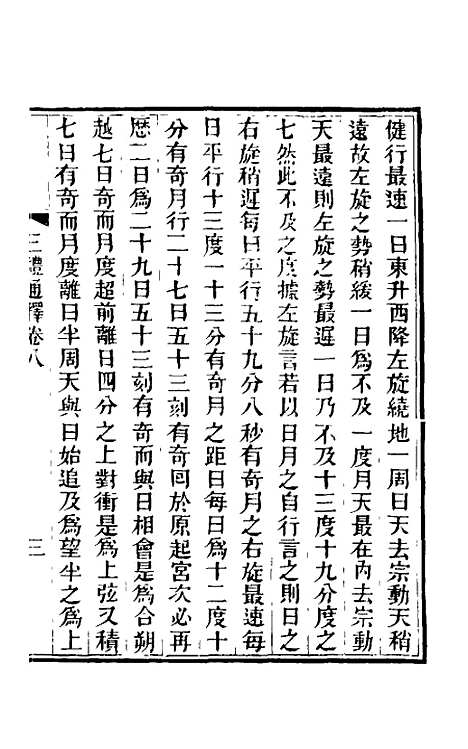 健行最速一日東升西降左旋繞地一周日天去宗動天稍
遠故左旋之勢稍緩一日爲不及一度月天最在內去宗動
天最遠則左旋之勢最遲一日乃不及十三度十九分度之
七然此不及之度據左旋言若以日月之自行言之則日之
右旋稍遲每日平行五十九分八秒有奇月之右旋最速每
日平行十三度一十三分有奇月之距日每日爲十二度十
分有奇月行二十七日五十三刻有奇囘於原起宮次必再
歴二日爲二十九日五十三刻有奇而與日相會是爲合朔
越七日奇而月度超前離日四分之上對衝是爲上弦又積
七日有奇而月度離日半周天與日始追及爲望半之爲上
三禮通釋卷八
三